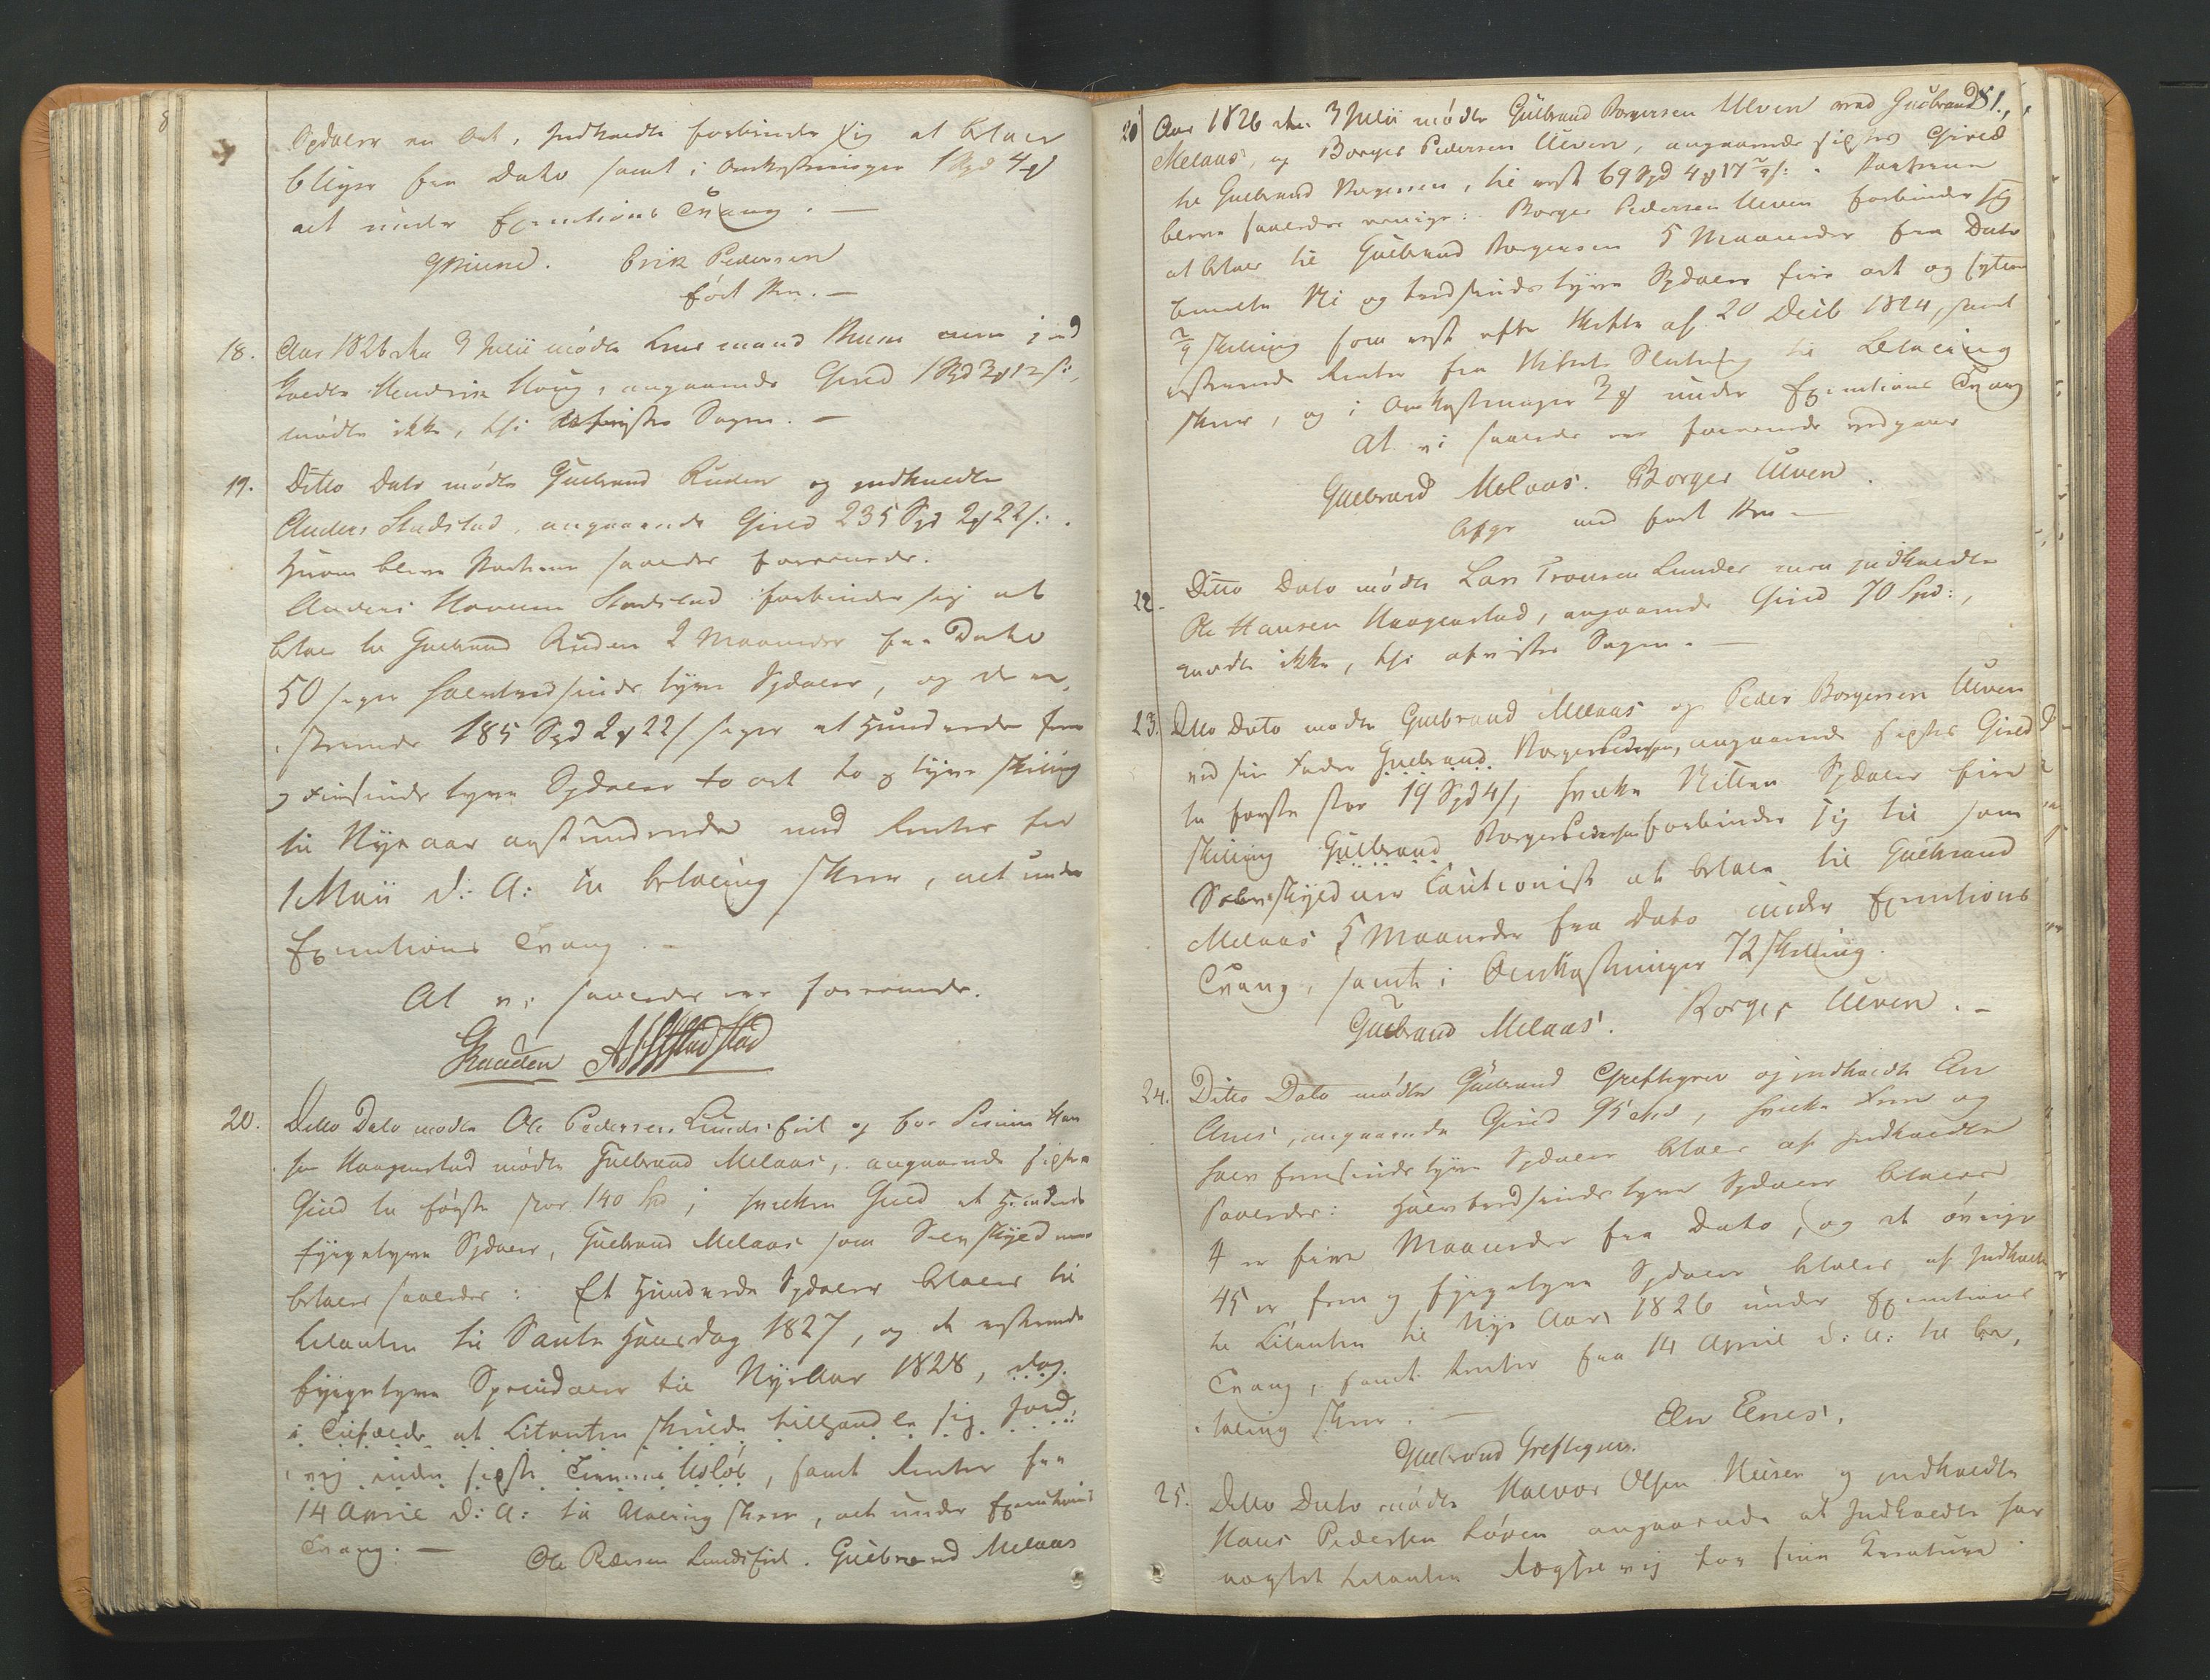 Spdaler en Ort, Indkaldte forbinder sig at betale
bliger fra Dato samt i Omkostninger 1 Spd 4 ort
alt under Executions Tvang. —
Erik Pedersen
ført Pen. —
18. Aar 1826 den 3 Julii mødte Lensmand men ind
kaldte Hendrik Houg, angaaende Gield 1 Spd 2 ort 12 s:,
mødte ikke, thi afvistes Sagen. —
19. Ditto Dato mødte Gulbrand Ruden og indkaldte
Anders Stadstad, angaaende Gield 235 Spd 2 ort 22 s:.
Hvorom bleve Parterne saaledes forenede.
Anders Stadstad forbinder sig at
betale til Gulbrand Ruden 2 Maaneder fra Dato
50 siger halvtredsindstyve Spdaler, og de re-
sterende 185 Spd 2 ort 22 s siger et Hundrede fem
og Firsindstyve Spdaler to ort to og tyve skilling
til Nytaar anstundende med Renter fra
1 Maii d: A: til betaling skeer, alt under
Executions Tvang. —
At vi saaledes ere forenede.
GRuuden AHStadstad
20. Ditto Dato mødte Ole Pedersen Lundsfiel og for Simen Han
sen Haagenstad mødte Gulbrand Melaas, angaaende sigtes
Gield til første stor 140 Spd, hvilken Gield et Hundrede
fyrgetyve Spdaler, Gulbrand Melaas som Selvskyldner
betaler saaledes: Et Hundrede Spdaler betales til
Citanten til Sankt Hansdag 1827, og de resterende
fyrgetyve Speciedaler til Nytaar 1828, dog
i Tilfælde at Citanten skulde tilhandle sig Jord,
inden sidste Termins Udløb, samt Renter fra
14 April d: A: til betaling skeer, alt under Executions
Tvang. — Ole Pedersen Lundsfiel. Gulbrand Melaas
81.
20 Aar 1826 den 3 Julii mødte Gulbrand Borgersen Ulven med Gulbrand
Melaas, og Borger Pedersen Ulven, angaaende sigtes Gield
til Gulbrand Borgersen, til rest 69 Spd 4 ort 17 7/9 s:. Parterne
bleve saaledes enige: Borger Pedersen Ulven forbinder sig
at betale til Gulbrand Borgersen 5 Maaneder fra Dato
bemelte Ni og tredsindstyve Spdaler fire ort og sytten
7/9 skilling som rest efter Skifte af 20 Decb 1824, samt
resterende Renter fra Skiftets Slutning til betaling
skeer, og i Omkostninger 3 ort under Executions Tvang
At vi saaledes ere forenede vedgaaer
Gulbrand Melaas. Borger Ulven.
med ført Pen —
22. Ditto Dato mødte Lars Tronsen Lunde men indkaldte
Ole Hansen Haagenstad, angaaende Gield 70 Spd:,
mødte ikke, thi afvistes Sagen. —
23. Ditto Dato mødte Gulbrand Melaas og Peder Borgersen Ulven
ved sin Fader Gulbrand Borger Pedersen, angaaende sigtes Gield
til første stor 19 Spd 4 s, hvilke Nitten Spdaler fire
skilling Gulbrand Borger Pedersen forbinder sig til som
Selvskyldner Cautionist at betale til Gulbrand
Melaas 5 Maaneder fra Dato under Executions
Tvang, samt i Omkostninger 72 skilling.
Gulbrand Melaas. Borger Ulven. —
24. Ditto Dato mødte Gulbrand Greftegrev og indkaldte Elv
Enes, angaaende Gield 95 Spd, hvilke Fem og
halvfemsindstyve Spdaler betales af Indkaldte
saaledes: Halvtredsindstyve Spdaler betales
4 er fire Maaneder fra Dato, og de øvrige
45 er fem og fyrgetyve Spdaler betales af Indkaldte
til Citanten til Nyt Aar 1826 under Executions
Tvang, samt Renter fra 14 April d: A: til be-
taling skeer. —
Elv Enes.
Gulbrand Greftegrev.
25. Ditto Dato mødte Halvor Olsen og indkaldte
Hans Pedersen Løven angaaende at Indkaldte har
nægtet Citanten for sine Kreature